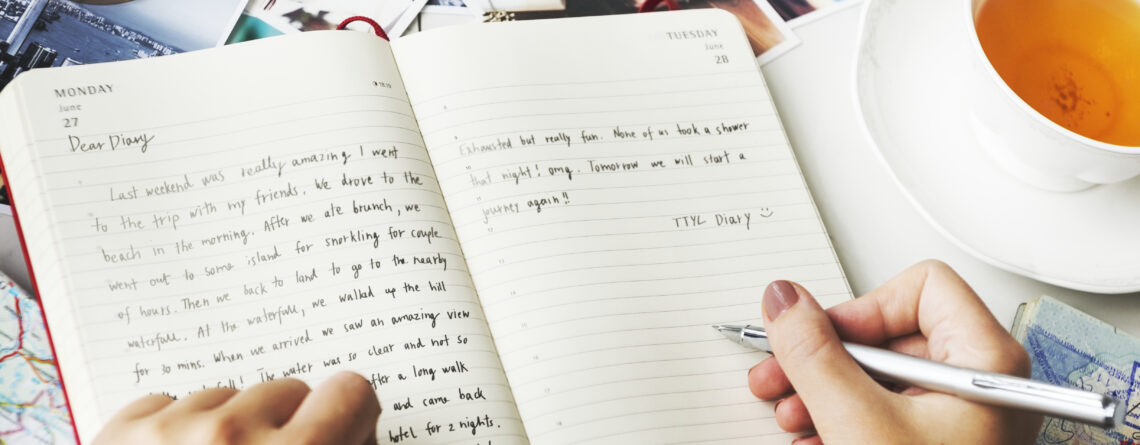 MONDAY
June
27
Dear Diary
Last weekend was really amazing I went
to the trip with my friends. We drove to the
beach in the morning. After we ate brunch, we
went out to some island for snorkling for couple
of hours. Then we back to land to go to the nearby
waterfall. At the waterfall, we walked up the hill
for 30 mins. When we arrived we saw an amazing view
The water was so clear and not so
after a long walk
and came back
hotel for 2 nights.
TUESDAY
June
28
Exhausted but really fun. None of us took a shower
that night! omg. Tomorrow we will start a
journey again!!
TTYL Diary